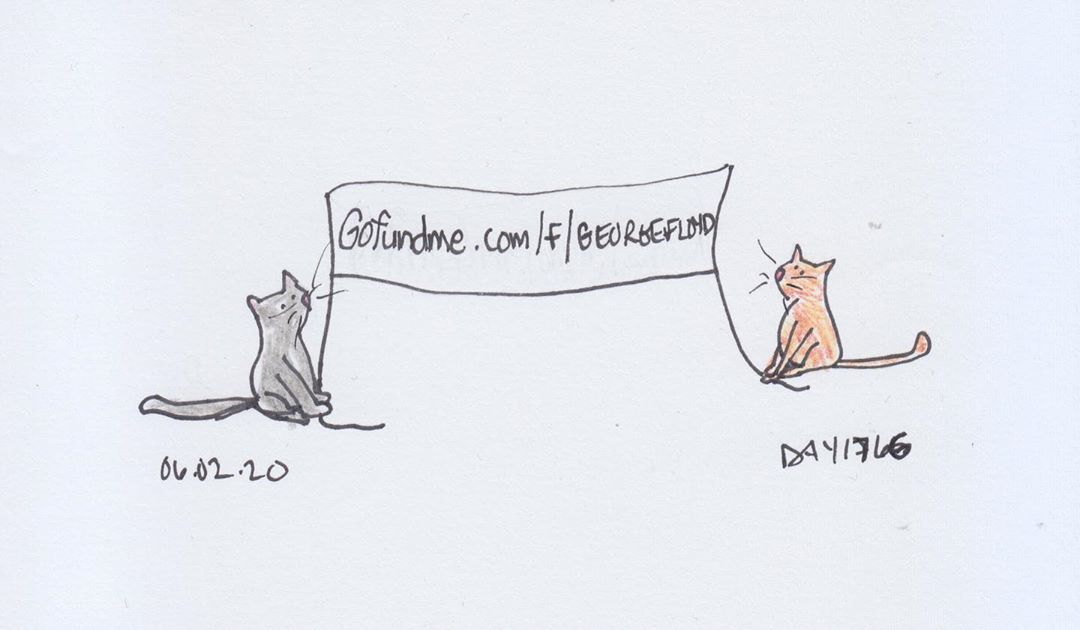 Gofundme.com/f/GEORGEFLOYD
06.02.20
DAY1766